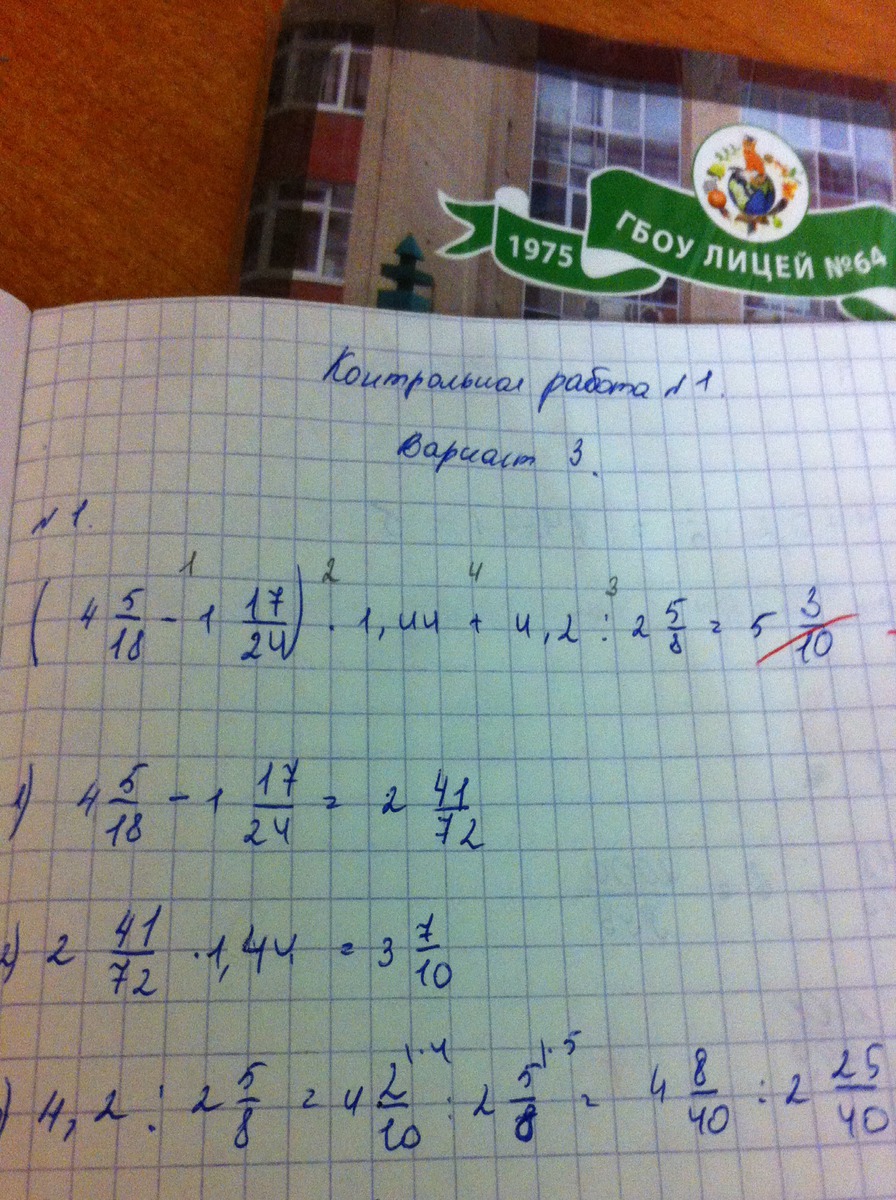 1975 ГБОУ ЛИЦЕЙ №64
Контрольная работа №1.
Вариант 3.
№1.
1 2 4 3
(4 5/18 - 1 17/24) · 1,44 + 4,2 : 2 5/8 = 5 3/10
1) 4 5/18 - 1 17/24 = 2 41/72
2) 2 41/72 · 1,44 = 3 7/10
) 4,2 : 2 5/8 = 4 2/10 |·4 : 2 5/8 |·5 = 4 8/40 : 2 25/40